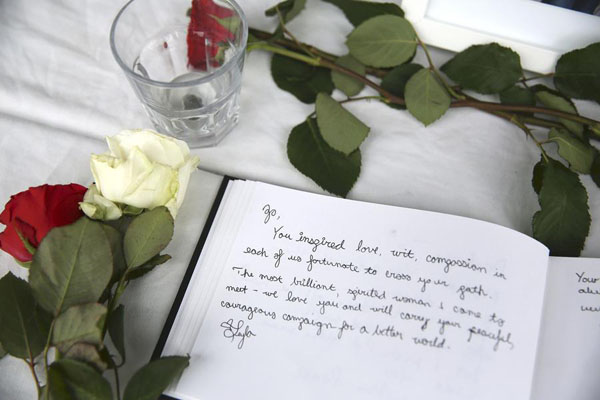 Jo,
You inspired love, wit, compassion in
each of us fortunate to cross your path.
The most brilliant, spirited woman I come to
meet - we love you and will carry your peaceful,
courageous campaign for a better world.